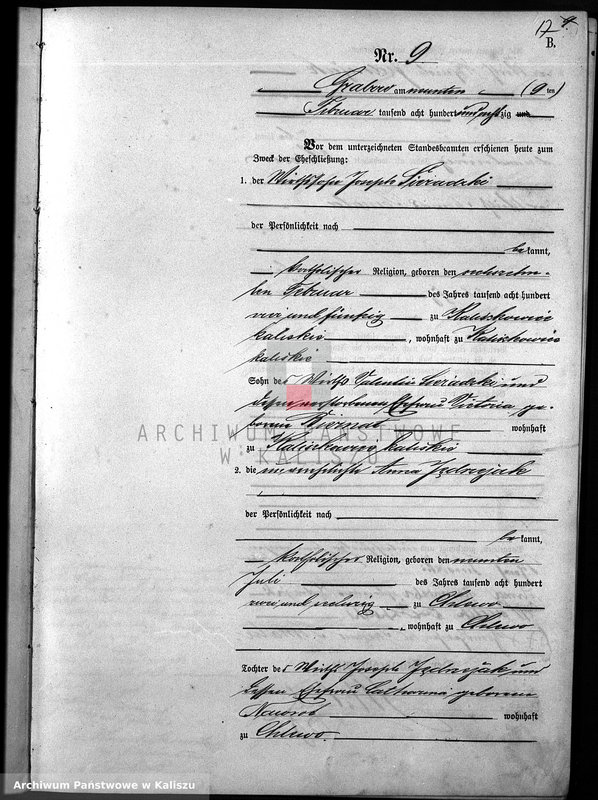 17 9.
B.
Nr. 9
Grabow am neunten (9 ten)
Februar tausend acht hundert zig und
Vor dem unterzeichneten Standesbeamten erschienen heute zum
Zweck der Eheschließung:
1. der Wirthssohn Joseph Sieradzki
der Persönlichkeit nach
bekannt,
katholischer Religion, geboren den
ten Februar des Jahres tausend acht hundert
und fünfzig zu Kaliszkowice
kaliskie, wohnhaft zu Kaliszkowice
kaliskie
Sohn des Wirths Valentin Sieradzki und
dessen verstorbenen Ehefrau Victoria ge-
borenen Biernat wohnhaft
zu Kaliszkowice kaliskie
ARCHIWUM PAŃSTWOWE
W KALISZU
2. die unverehelichte Anna Jędrzejak
der Persönlichkeit nach
bekannt,
katholischer Religion, geboren den neunten
Juli des Jahres tausend acht hundert
und sechzig zu Chlewo
, wohnhaft zu Chlewo
Tochter des Wirths Joseph Jędrzejak und
dessen Ehefrau Catharina geborenen
Nawrot wohnhaft
zu Chlewo
Archiwum Państwowe w Kaliszu